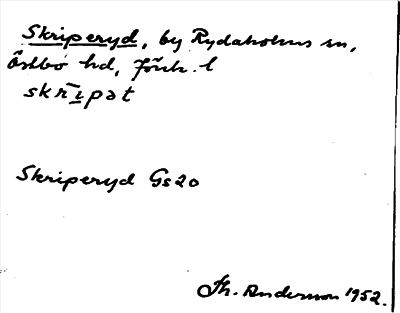 Skriperyd, by Rydaholms sn,
Östbo hd, Jönk. l
skrīpət
Skriperyd Gs20
Th. Andersson 1952.